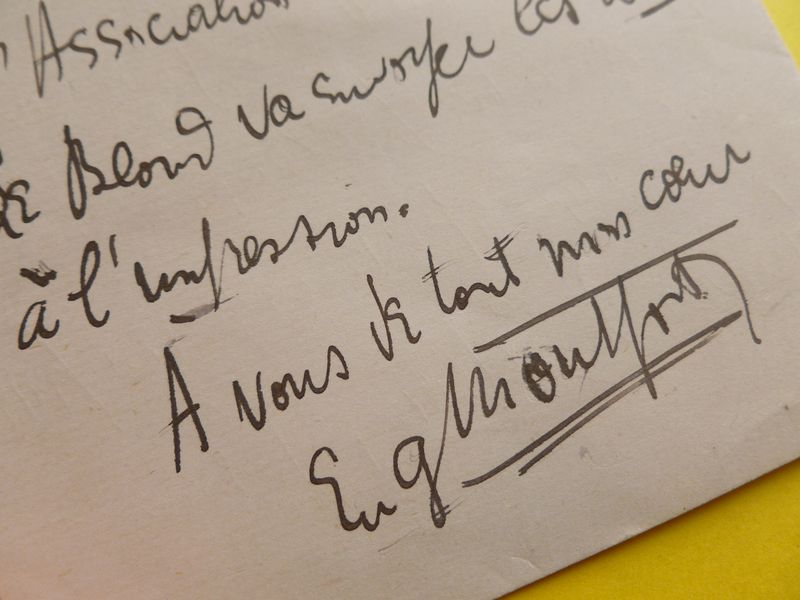 l'Association
Le Blond va envoyer les
à l'impression.
A vous de tout mon cœur
Eug Montfort